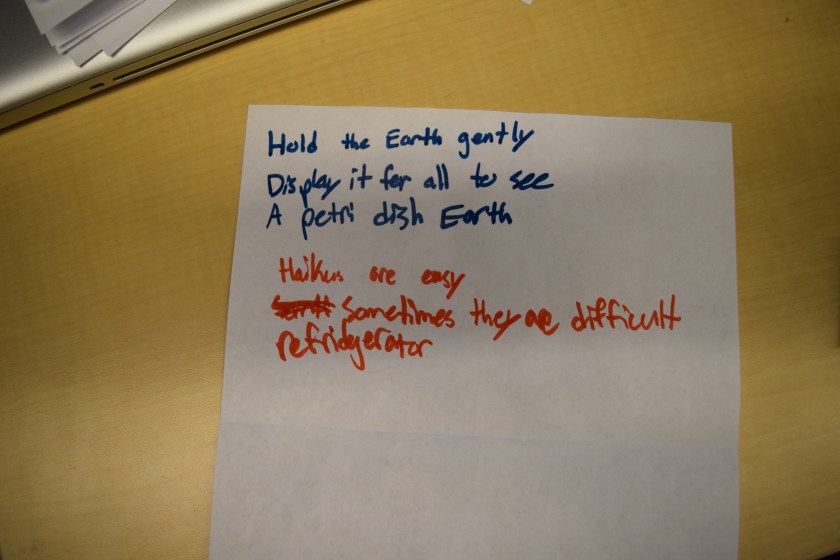 Hold the Earth gently
Display it for all to see
A petri dish Earth
Haikus are easy
sometimes they are difficult
refridgerator